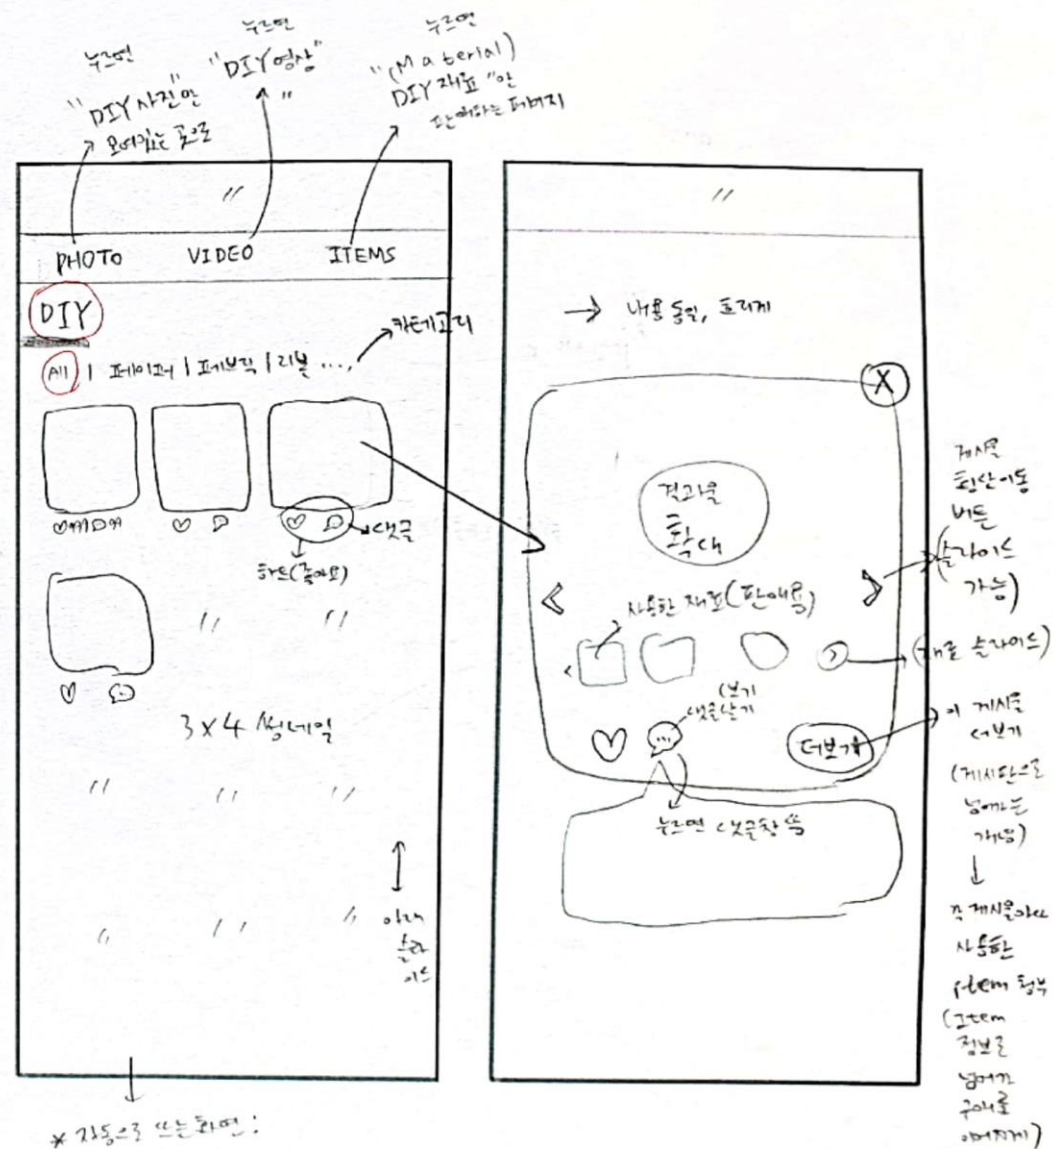 누르면
"DIY 사진"만
모여있는 곳으로
누르면
"DIY 영상"
"
누르면
(Material)
"DIY 재료"만
판매하는 페이지
"
PHOTO
VIDEO
ITEMS
DIY
All | 페이퍼 | 페브릭 | 리본 ....
카테고리
댓글
하트(좋아요)
"
"
3x4 썸네일
"
"
"
"
"
"
아래
슬라
이드
* 자동으로 뜨는 화면:
"
→ 내용 동일, 흐리게
X
결과물
확대
<
>
사용한 재료(판매용)
<
>
(보기
댓글달기
더보기
누르면 댓글창 뜸
게시물
횡산이동
버튼
(슬라이드
가능)
(재료 슬라이드)
이 게시물
더보기
(게시판으로
넘어가는
개념)
각 게시물마다
사용한
item 첨부
(Item
정보로
넘어가
구매로
이어지게)